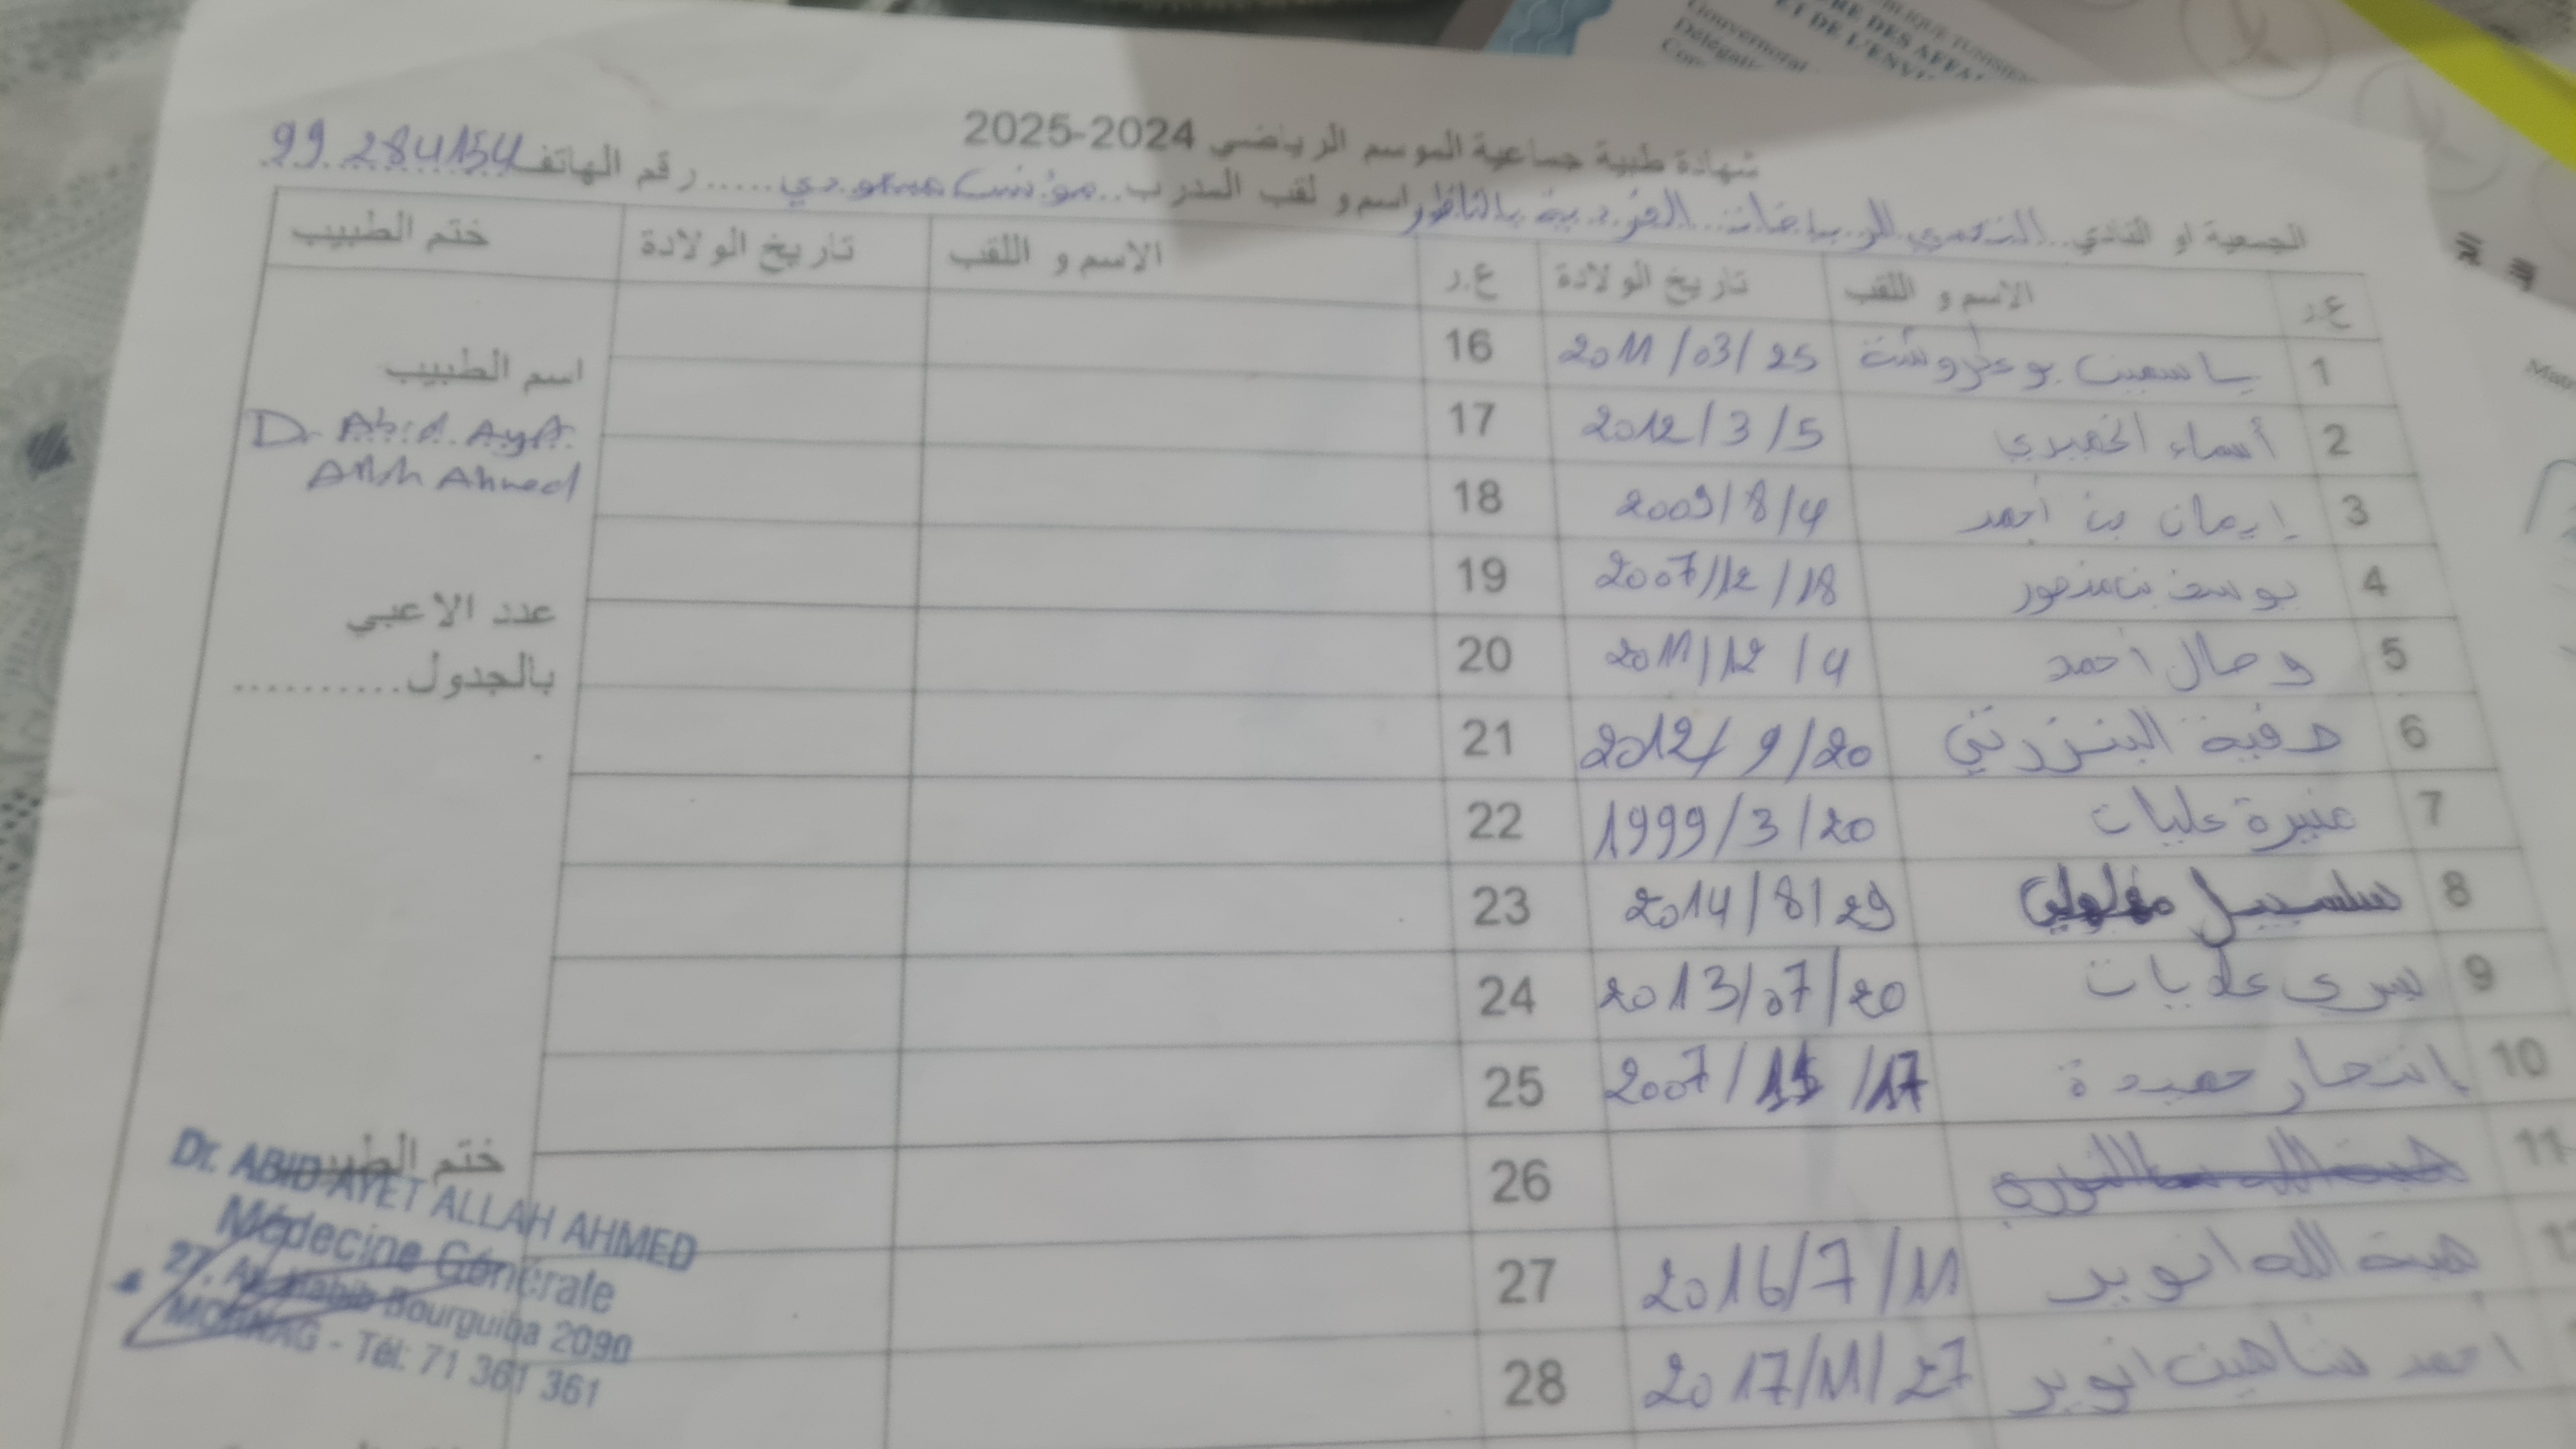 شهادة طبية جماعية الموسم الرياضي 2024-2025
الجمعية او النادي.. للرياضات الفردية بالناظور اسم و لقب المدرب.. مسعودي..... رقم الهاتف 99 284154
ع.ر الاسم و اللقب تاريخ الولادة ع.ر الاسم و اللقب تاريخ الولادة ختم الطبيب
1 ياسمين 2011/03/25 16
2 أسماء 2012/3/5 17
3 إيمان بن أحمد 2009/8/4 18
4 يوسف بن منصور 2007/12/18 19
5 وصال أحمد 2011/12/4 20
6 صفية البنزرتي 2012/9/20 21
7 عبيرة عليات 1999/3/20 22
8 سلسبيل 2014/8/29 23
9 يسرى 2013/07/20 24
10 إنتصار حميدة 2007/11/17 25
11 26
هبة الله انوير 2016/7/11 27
أحمد شاهين انوير 2017/11/27 28
اسم الطبيب
Dr Abid Ayet
Allah Ahmed
عدد الاعبي
بالجدول..........
ختم الطبيب
Dr. ABID AYET ALLAH AHMED
Médecine Générale
27, Av. Habib Bourguiba 2090
MORNAG - Tél: 71 361 361
BLIQUE TUNISIENNE
RE DES AFFAI
ET DE L'ENVI
Gouvernorat